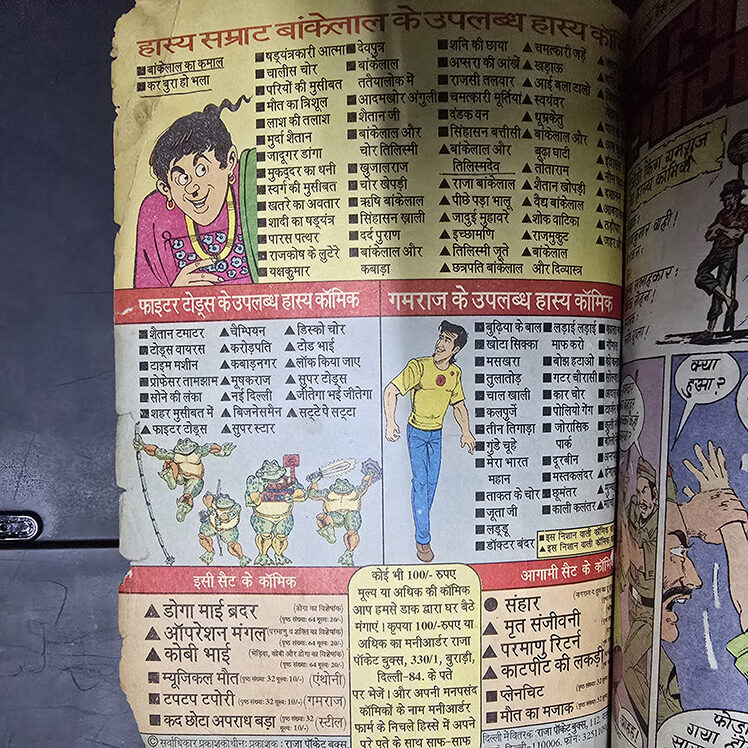 हास्य सम्राट बांकेलाल के उपलब्ध हास्य
■ बांकेलाल का कमाल
■ कर बुरा हो भला
■ षड्यंत्रकारी आत्मा
■ चालीस चोर
■ परियों की मुसीबत
■ मौत का त्रिशूल
■ लाश की तलाश
■ मुर्दा शैतान
■ जादूगर डांगा
■ मुकद्दर का धनी
■ स्वर्ग की मुसीबत
■ खतरे का अवतार
■ शादी का षड्यंत्र
■ पारस पत्थर
■ राजकोष के लुटेरे
■ यक्षकुमार
■ देवपुत्र
■ बांकेलाल
ततैयालोक में
■ आदमखोर अंगुली
■ शैतान जी
■ बांकेलाल और
चोर तिलिस्मी
■ खुजालराज
■ चोर खेपड़ी
■ ऋषि बांकेलाल
■ सिंहासन खाली
■ दर्द पुराण
■ बांकेलाल और
कबाड़ा
■ शनि की छाया
■ अप्सरा की आंखें
■ राजसी तलवार
■ चमत्कारी मूर्तियां
■ दंडक वन
■ सिंहासन बत्तीसी
▲ बांकेलाल और
तिलिस्मदेव
▲ राजा बांकेलाल
▲ पीछे पड़ा भालू
▲ जादुई मुहावरे
▲ इच्छामणि
▲ तिलिस्मी जूते
▲ छत्रपति बांकेलाल
▲ चमत्कारी जड़ें
▲ खड़ाऊ
▲ आई बला टालो
▲ स्वयंवर
▲ धूम्रकेतु
▲ बांकेलाल और
बूढ़ा घाटी
▲ तोताराम
▲ शैतान खोपड़ी
▲ वैद्य बांकेलाल
▲ शोक वाटिका
▲ राजमुकुट
▲ बांकेलाल
और दिव्यास्त्र
फाइटर टोड्स के उपलब्ध हास्य कॉमिक
■ शैतान टमाटर
■ टोड्स वायरस
■ टाइम मशीन
■ प्रोफेसर तामझाम
■ सोने की लंका
■ शहर मुसीबत में
▲ फाइटर टोड्स
▲ चैम्पियन
▲ करोड़पति
▲ कबाड़नगर
▲ मूषकराज
▲ नई दिल्ली
▲ बिजनेसमैन
▲ सुपर स्टार
▲ डिस्को चोर
▲ टोड भाई
▲ लॉक किया जाए
▲ सुपर टोड्स
▲ जीतेगा भई जीतेगा
▲ सट्टे पे सट्टा
गमराज के उपलब्ध हास्य कॉमिक
■ बुढ़िया के बाल
■ खोटा सिक्का
■ मसखरा
■ तुलातोड़
■ चाल खाली
■ कलपुर्जे
■ तीन तिगाड़ा
■ गुंडे चूहे
■ मेरा भारत
महान
■ ताकत के चोर
■ जूता जी
■ लड्डू
■ डॉक्टर बंदर
■ लड़ाई लड़ाई
माफ करो
■ बोझ हटाओ
■ गटर चौरासी
■ कार चोर
■ पोलियो गेंग
■ जोरासिक
पार्क
■ दूरबीन
■ मस्तकलंदर
■ छूमंतर
■ काली कृलतर
■ इस निशान वाली कॉमिक
▲ इस निशान वाली कॉमिक
इसी सैट के कॉमिक
▲ डोगा माई ब्रदर (डोगा का विशेषांक)
(पृष्ठ संख्याः 64 मूल्यः 20/-)
▲ ऑपरेशन मंगल (परमाणु व शक्ति का विशेषांक)
(पृष्ठ संख्याः 64 मूल्यः 20/-)
▲ कोबी भाई (भेड़िया, कोबी और डोगा का विशेषांक)
(पृष्ठ संख्याः 64 मूल्यः 20/-)
■ म्यूजिकल मौत (पृष्ठ संख्याः 32 मूल्यः 10/-) (एंथोनी)
■ टपटप टपोरी (पृष्ठ संख्याः 32 मूल्यः 10/-) (गमराज)
■ कद छोटा अपराध बड़ा (पृष्ठ संख्याः 32 मूल्यः 10/-) (स्टील)
© सर्वाधिकार प्रकाशकाधीनः प्रकाशक : राजा पॉकेट बुक्स
कोई भी 100/- रुपए
मूल्य या अधिक की कॉमिक
आप हमसे डाक द्वारा घर बैठे
मंगाएं। कृपया 100/-रुपए या
अधिक का मनीआर्डर राजा
पॉकेट बुक्स, 330/1, बुराड़ी,
दिल्ली-84. के पते
पर भेजें। और अपनी मनपसंद
कॉमिकों के नाम मनीआर्डर
फार्म के निचले हिस्से में अपने
पूरे पते के साथ साफ-साफ
आगामी सैट के
● संहार
▲ मृत संजीवनी
▲ परमाणु रिटर्न
▲ काटपीट की लकड़ी
■ प्लेनचिट
■ मौत का मजाक
दिल्ली में वितरक : राजा पॉकेट बुक्स, 112,
110006. फोन:
क्या
हुआ?
गया